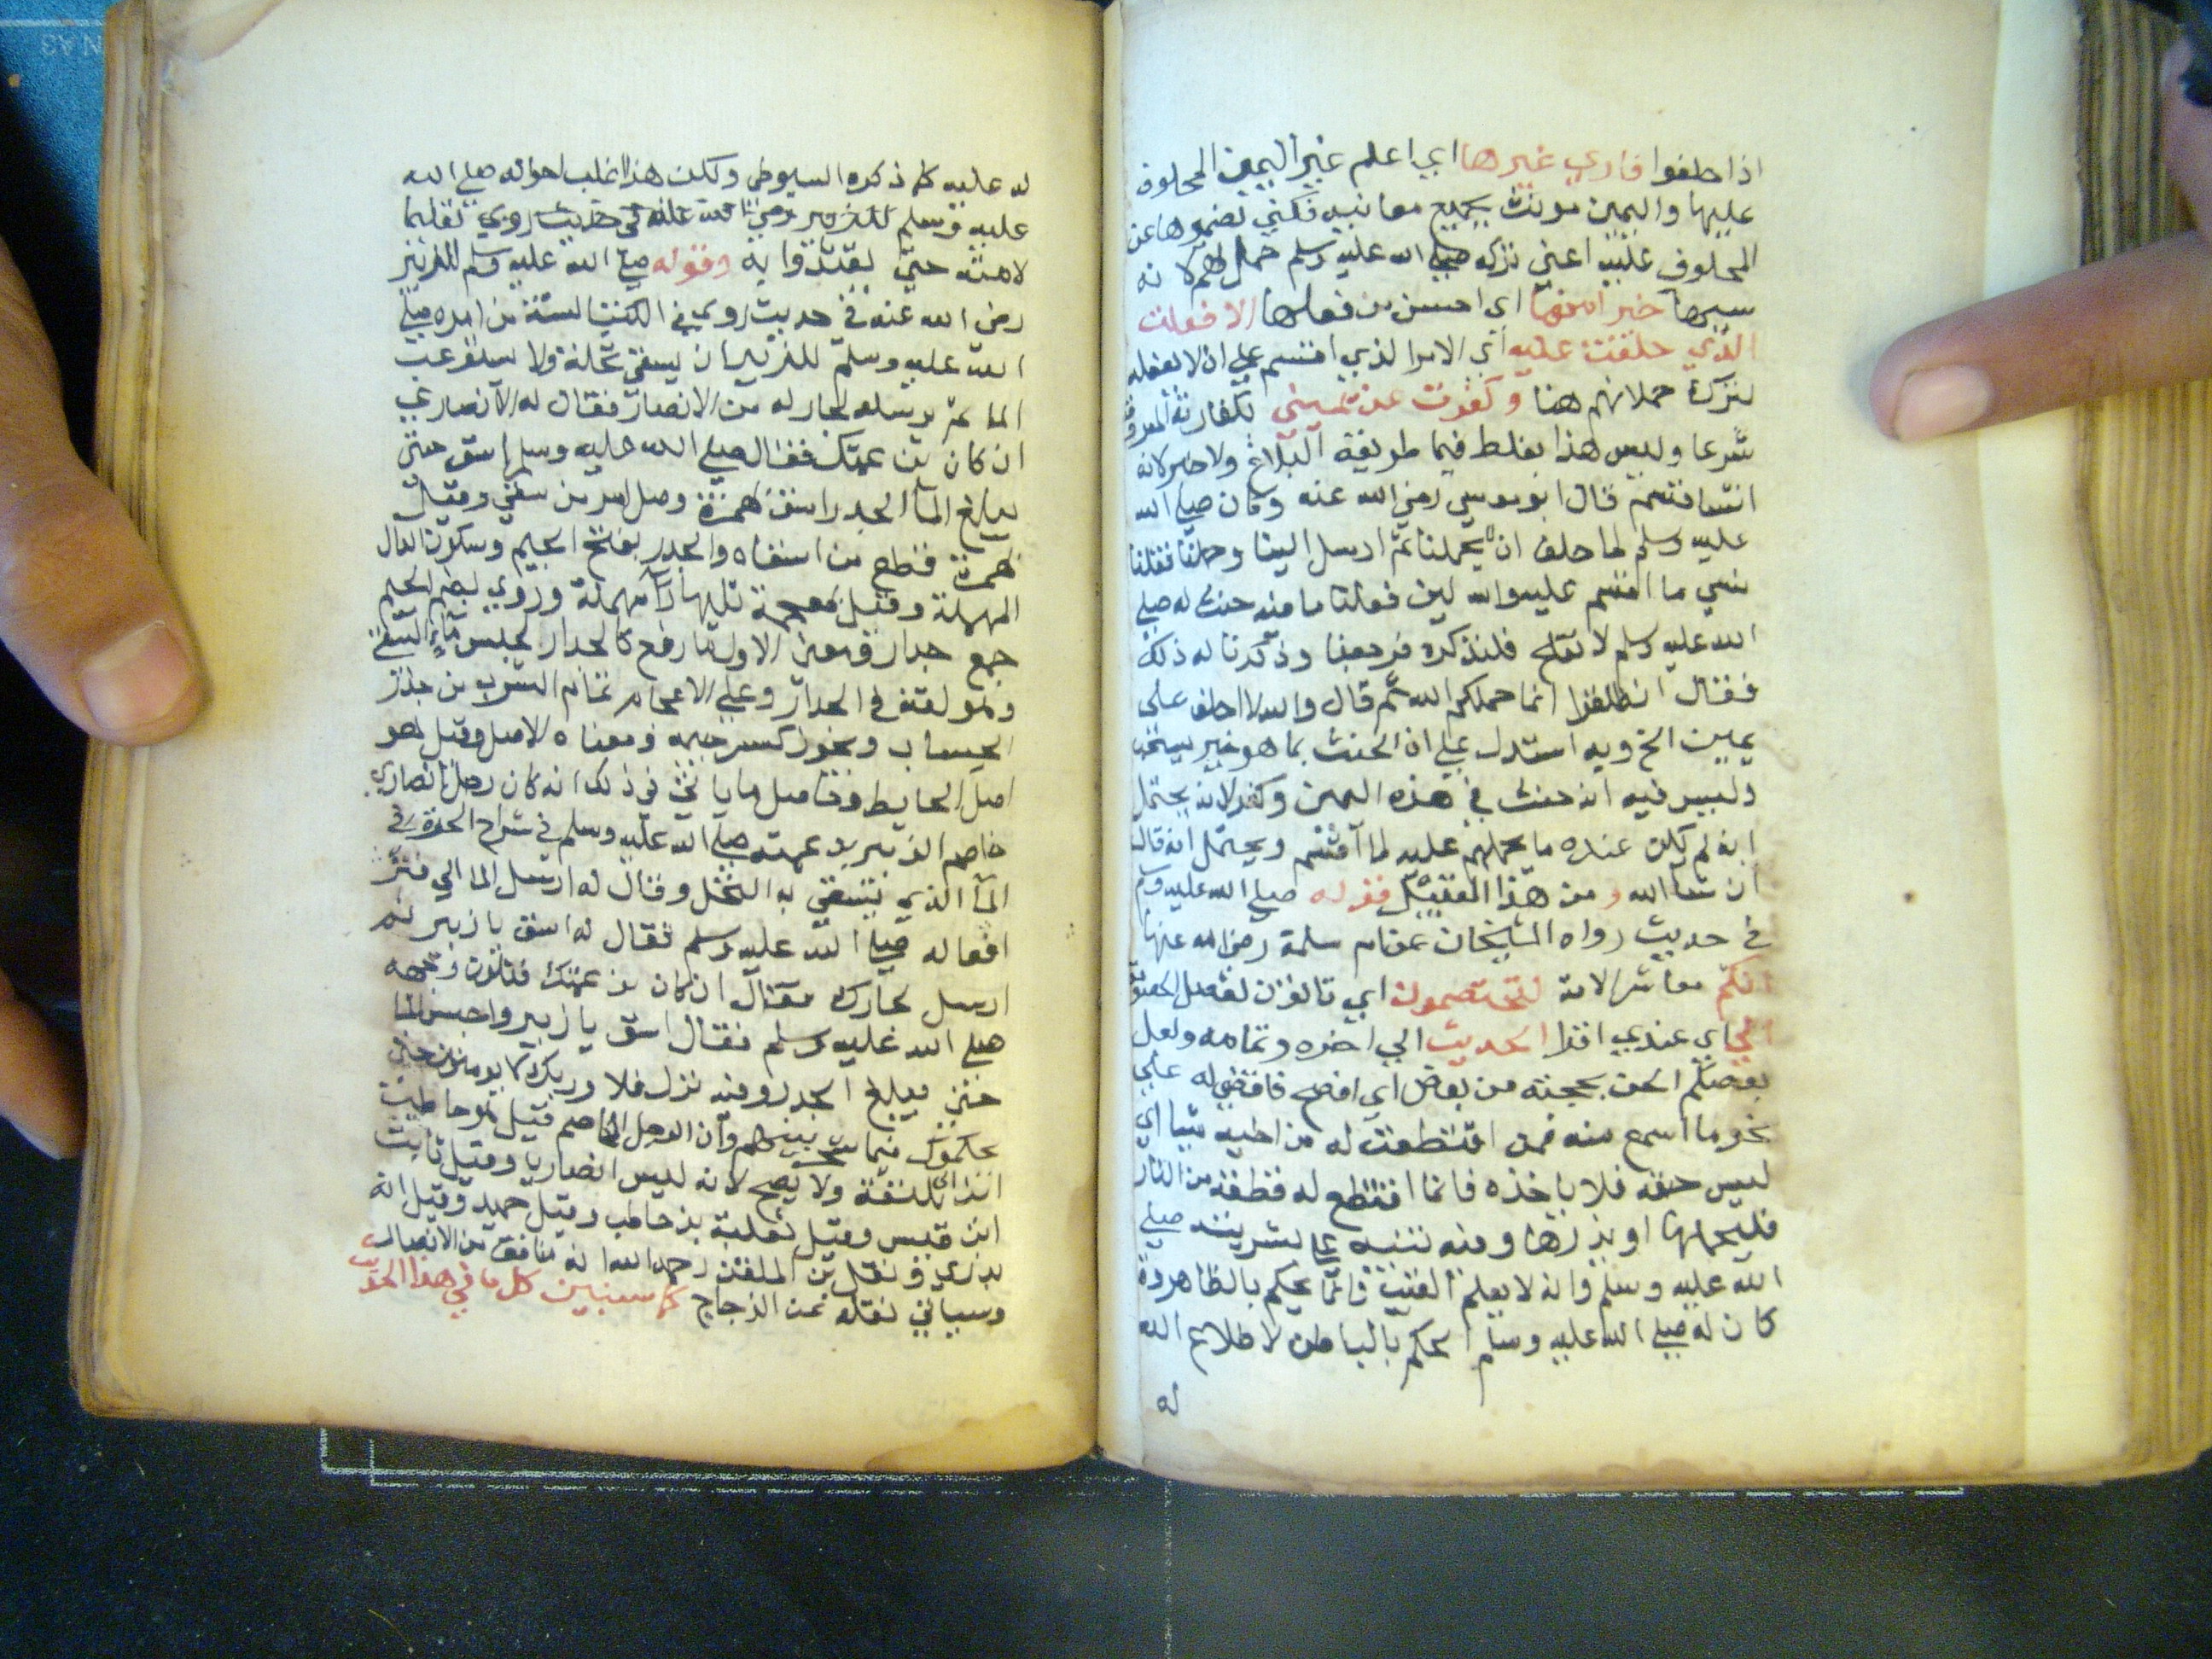 اذا حلفوا فاري غيرها اي اعلم غير اليمين المحلوف
عليها واليمين مونث بجميع معانيه فكني بضميرها عن
المحلوف عليه اعني تركه صلي الله عليه وسلم حملهم لانه
سببها خيرا منها اي احسن من فعلها الا فعلت
الذي حلفت عليه اي الامر الذي اقسم علي ان لا يفعله
لتركه حملانهم هنا وكفرت عن يميني بكفارته المعروفة
شرعا وليس هذا بغلط فيما طريقه البلاغ ولا خبر لانه
انشا قسم قال ابو موسي رضي الله عنه وكان صلي الله
عليه وسلم لما حلف ان لا يحملنا ثم ارسل الينا وحملنا فقلنا
نسي ما اقسم عليه والله لين فعلنا ما منه حنث له صلي
الله عليه وسلم لا نفلح فلنذكره فرجعنا وذكرنا له ذلك
فقال انطلقوا انما حملكم الله ثم قال والله لا احلف علي
يمين الخ وبه استدل علي ان الحنث بما هو خير يستحب
وليس فيه انه حنث في هذه اليمين وكفر لانه يحتمل
انه لم يكن عنده ما يحملهم عليه لما اقسم ويحتمل انه قال
ان شا الله ومن هذا القبيل قوله صلي الله عليه وسلم
في حديث رواه الشيخان عن ام سلمة رضي الله عنها
انكم معاشر الامة لتختصمون اي تاتون لفصل الخصومة
الي اي عندي اقرا الحديث الي اخره وتمامه ولعل
بعضكم الحن بحجته من بعض اي افصح فاقضي له علي
نحو ما اسمع منه فمن اقتطعت له من اخيه شيا اي
ليس حقه فلا ياخذه فانما اقتطع له قطعة من النار
فليحملها او يذرها ومنه تنبيه علي بشريته صلي
الله عليه وسلم وانه لا يعلم الغيب وانما يحكم بالظاهر وان
كان له صلي الله عليه وسلم الحكم بالباطن لاطلاع الله
له
له عليه كما ذكره السيوطي ولكن هذا اغلب احواله صلي الله
عليه وسلم للزبير رضي الله عنه في حديث روي تعليما
لامته حتي يقتدوا به وقوله صلي الله عليه وسلم للزبير
رضي الله عنه في حديث روي في الكتب الستة من امره صلي
الله عليه وسلم للزبير ان يسقي نخله ولا يستوعب
الما ثم يرسله لجار له من الانصار فقال له الانصاري
ان كان بن عمتك فقال صلي الله عليه وسلم اسق حتي
يبلغ الما الجدر اسق بهمزة وصل امر من سقي وقيل
بهمزة قطع من اسقاه والجدر بفتح الجيم وسكون الدال
المهملة وقيل معجمة تليها را مهملة وروي بضم الجيم
جمع جدار فهو علي الاول ما رفع كالجدار لحبس ماء السقي
وهو لغة في الجدار وعلي الاعجام تمام الشرب من جذر
الحساب ويجوز كسر جيمه ومعناه الاصل وقيل هو
اصل الحايط وحاصل ما ياتي في ذلك انه كان رجل انصاري
خاصم الزبير بن عمته صلي الله عليه وسلم في شراج الحرة في
الما الذي يسقي به النخل وقال له ارسل الما الي فترا
افعا له صلي الله عليه وسلم فقال له اسق يا زبير ثم
ارسل لجارك فقال ان كان بن عمتك فتلون وجهه
صلي الله عليه وسلم فقال اسق يا زبير واحبس الما
حتي يبلغ الجدر وفيه نزل فلا وربك لا يومنون حتي
يحكموك فيما شجر بينهم وان الرجل المخاصم قيل هو حاطب
ابن ابي بلتعة ولا يصح لانه ليس انصاريا وقيل ثابت
ابن قيس وقيل ثعلبة بن حاطب وقيل حميد وقيل انه
بدري ونقل بن الملقن رحمه الله انه منافق من الانصار
وسياتي نقله عن الزجاج كما سنبين كل ما في هذا الحديث